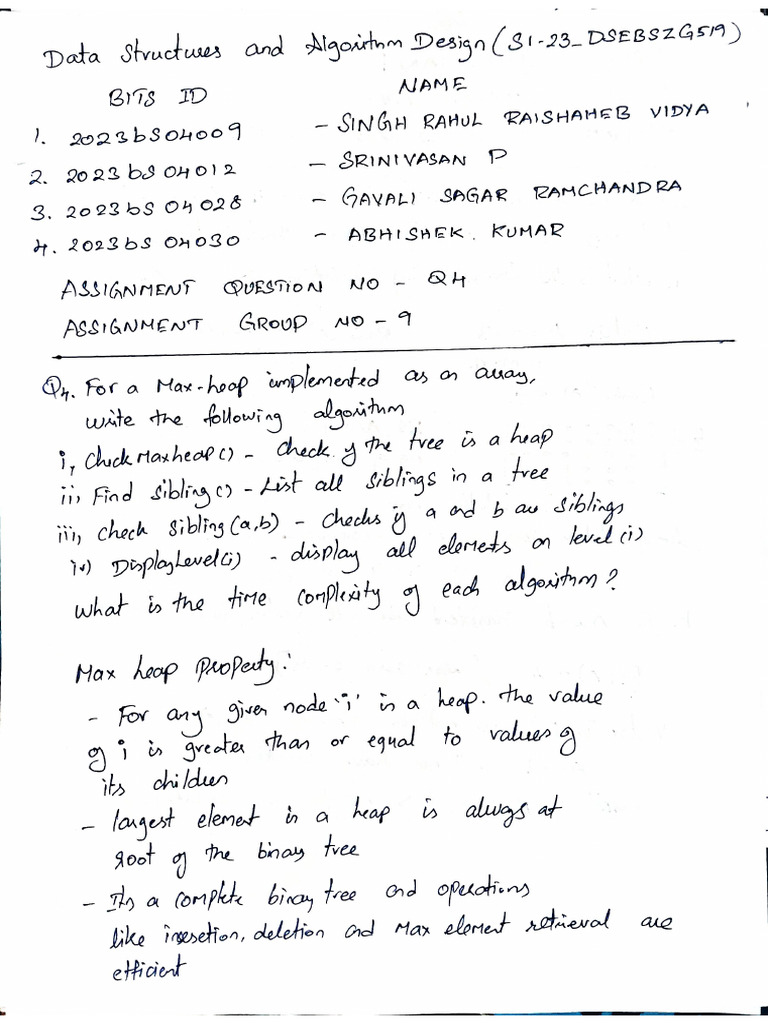 Data Structures and Algorithm Design (S1-23_DSEBSZG519)
BITS ID NAME
1. 2023bS04009 - SINGH RAHUL RAISHAHEB VIDYA
2. 2023bS04012 - SRINIVASAN P
3. 2023bS04028 - GAVALI SAGAR RAMCHANDRA
4. 2023bS04030 - ABHISHEK KUMAR
ASSIGNMENT QUESTION NO - Q4
ASSIGNMENT GROUP NO - 9
Q4. For a Max-heap implemented as an array,
write the following algorithm
i, CheckMaxheap() - check if the tree is a heap
ii, Find sibling() - List all siblings in a tree
iii, check sibling(a,b) - checks if a and b are siblings
iv) DisplayLevel(i) - display all elements on level(i)
What is the time complexity of each algorithm?
Max heap property:
- For any given node 'i' in a heap. the value
of i is greater than or equal to values of
its children
- largest element in a heap is always at
root of the binary tree
- Its a complete binary tree and operations
like insertion, deletion and Max element retrieval are
efficient